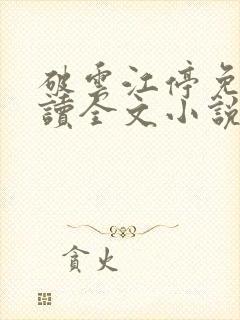 破雲江停免
讀全文小說
貪火